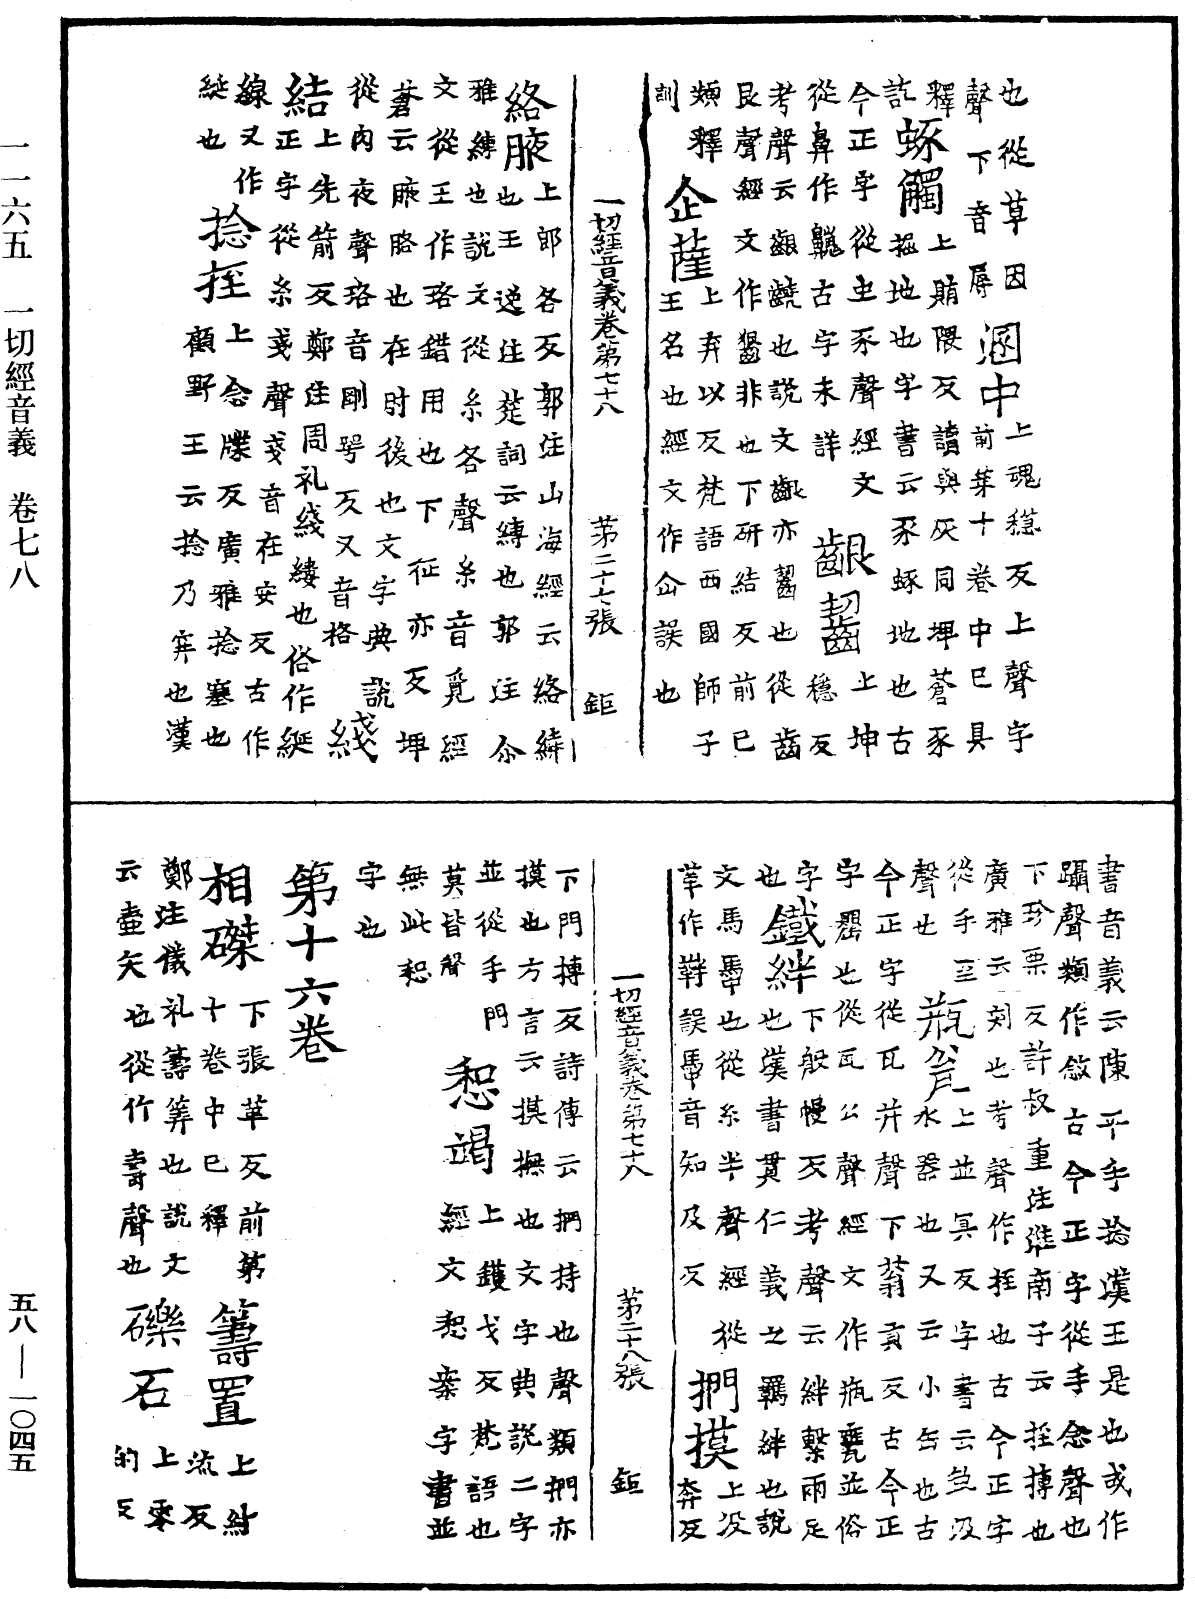 也從草因
聲下音辱溷中上魂穩反上聲字
釋上賄隈反讀與灰同埤蒼豕
詑𧉧觸掘地也字書云豕𧉧地也古
今正字從虫豕聲經文齦齧上坤
從鼻作䶎古字未詳穩反
考聲云齦齩也說文齦亦齧也從齒
艮聲經文作豤非也下研結反前已
頻釋企薩上弃以反梵語西國師子
訓王名也經文作仚誤也
一切經音義卷第七十八 第二十七張 鉅
絡腋上郎各反郭注山海經云絡繞
雅縛也王逸注楚詞云縛也郭注尒
文從王作珞錯用也下征亦反埤
蒼云腋胳也在肘後也文字典說
從肉夜聲珞音剛咢反又音格綫
結上先箭反鄭注周礼綫縷也俗作綖
線又作線正字從糸戔聲戔音在安反古作
綖也捻挃上念牒反廣雅捻塞也
顧野王云捻乃穽也漢
書音義云陳平手捻漢王是也或作
躡聲類作敜古今正字從手念聲也
下珍栗反許叔重注淮南子云挃搏也
廣雅云刻也考聲作挃也古今正字
從手至聲也瓶瓮上並冥反字書云瓶汲
水器也又云小缶也古
今正字從瓦并聲下蓊貢反古今正
字罌也從瓦公聲經文作瓶甕並俗
字也鐵絆下般慢反考聲云絆繫兩足
也漢書貫仁義之羈絆也說
文馬馽也從糸半聲經從捫摸上没
革作靽誤馽音知及反奔反
一切經音義卷第七十八 第二十八張 鉅
下門搏反詩傳云捫持也聲類捫亦
摸也方言云摸撫也文字典說二字
並從手門莫皆聲恕竭上鑊戈反梵語也
經文恕案字書並
無此恕字也
第十六卷
相磔下張革反前第十卷中已釋籌置上紂流反
鄭注儀礼籌筭也說文
云壼矢也從竹壽聲也礫石上零的反
一一六五 一切經音義 卷七八
五八—一〇四五